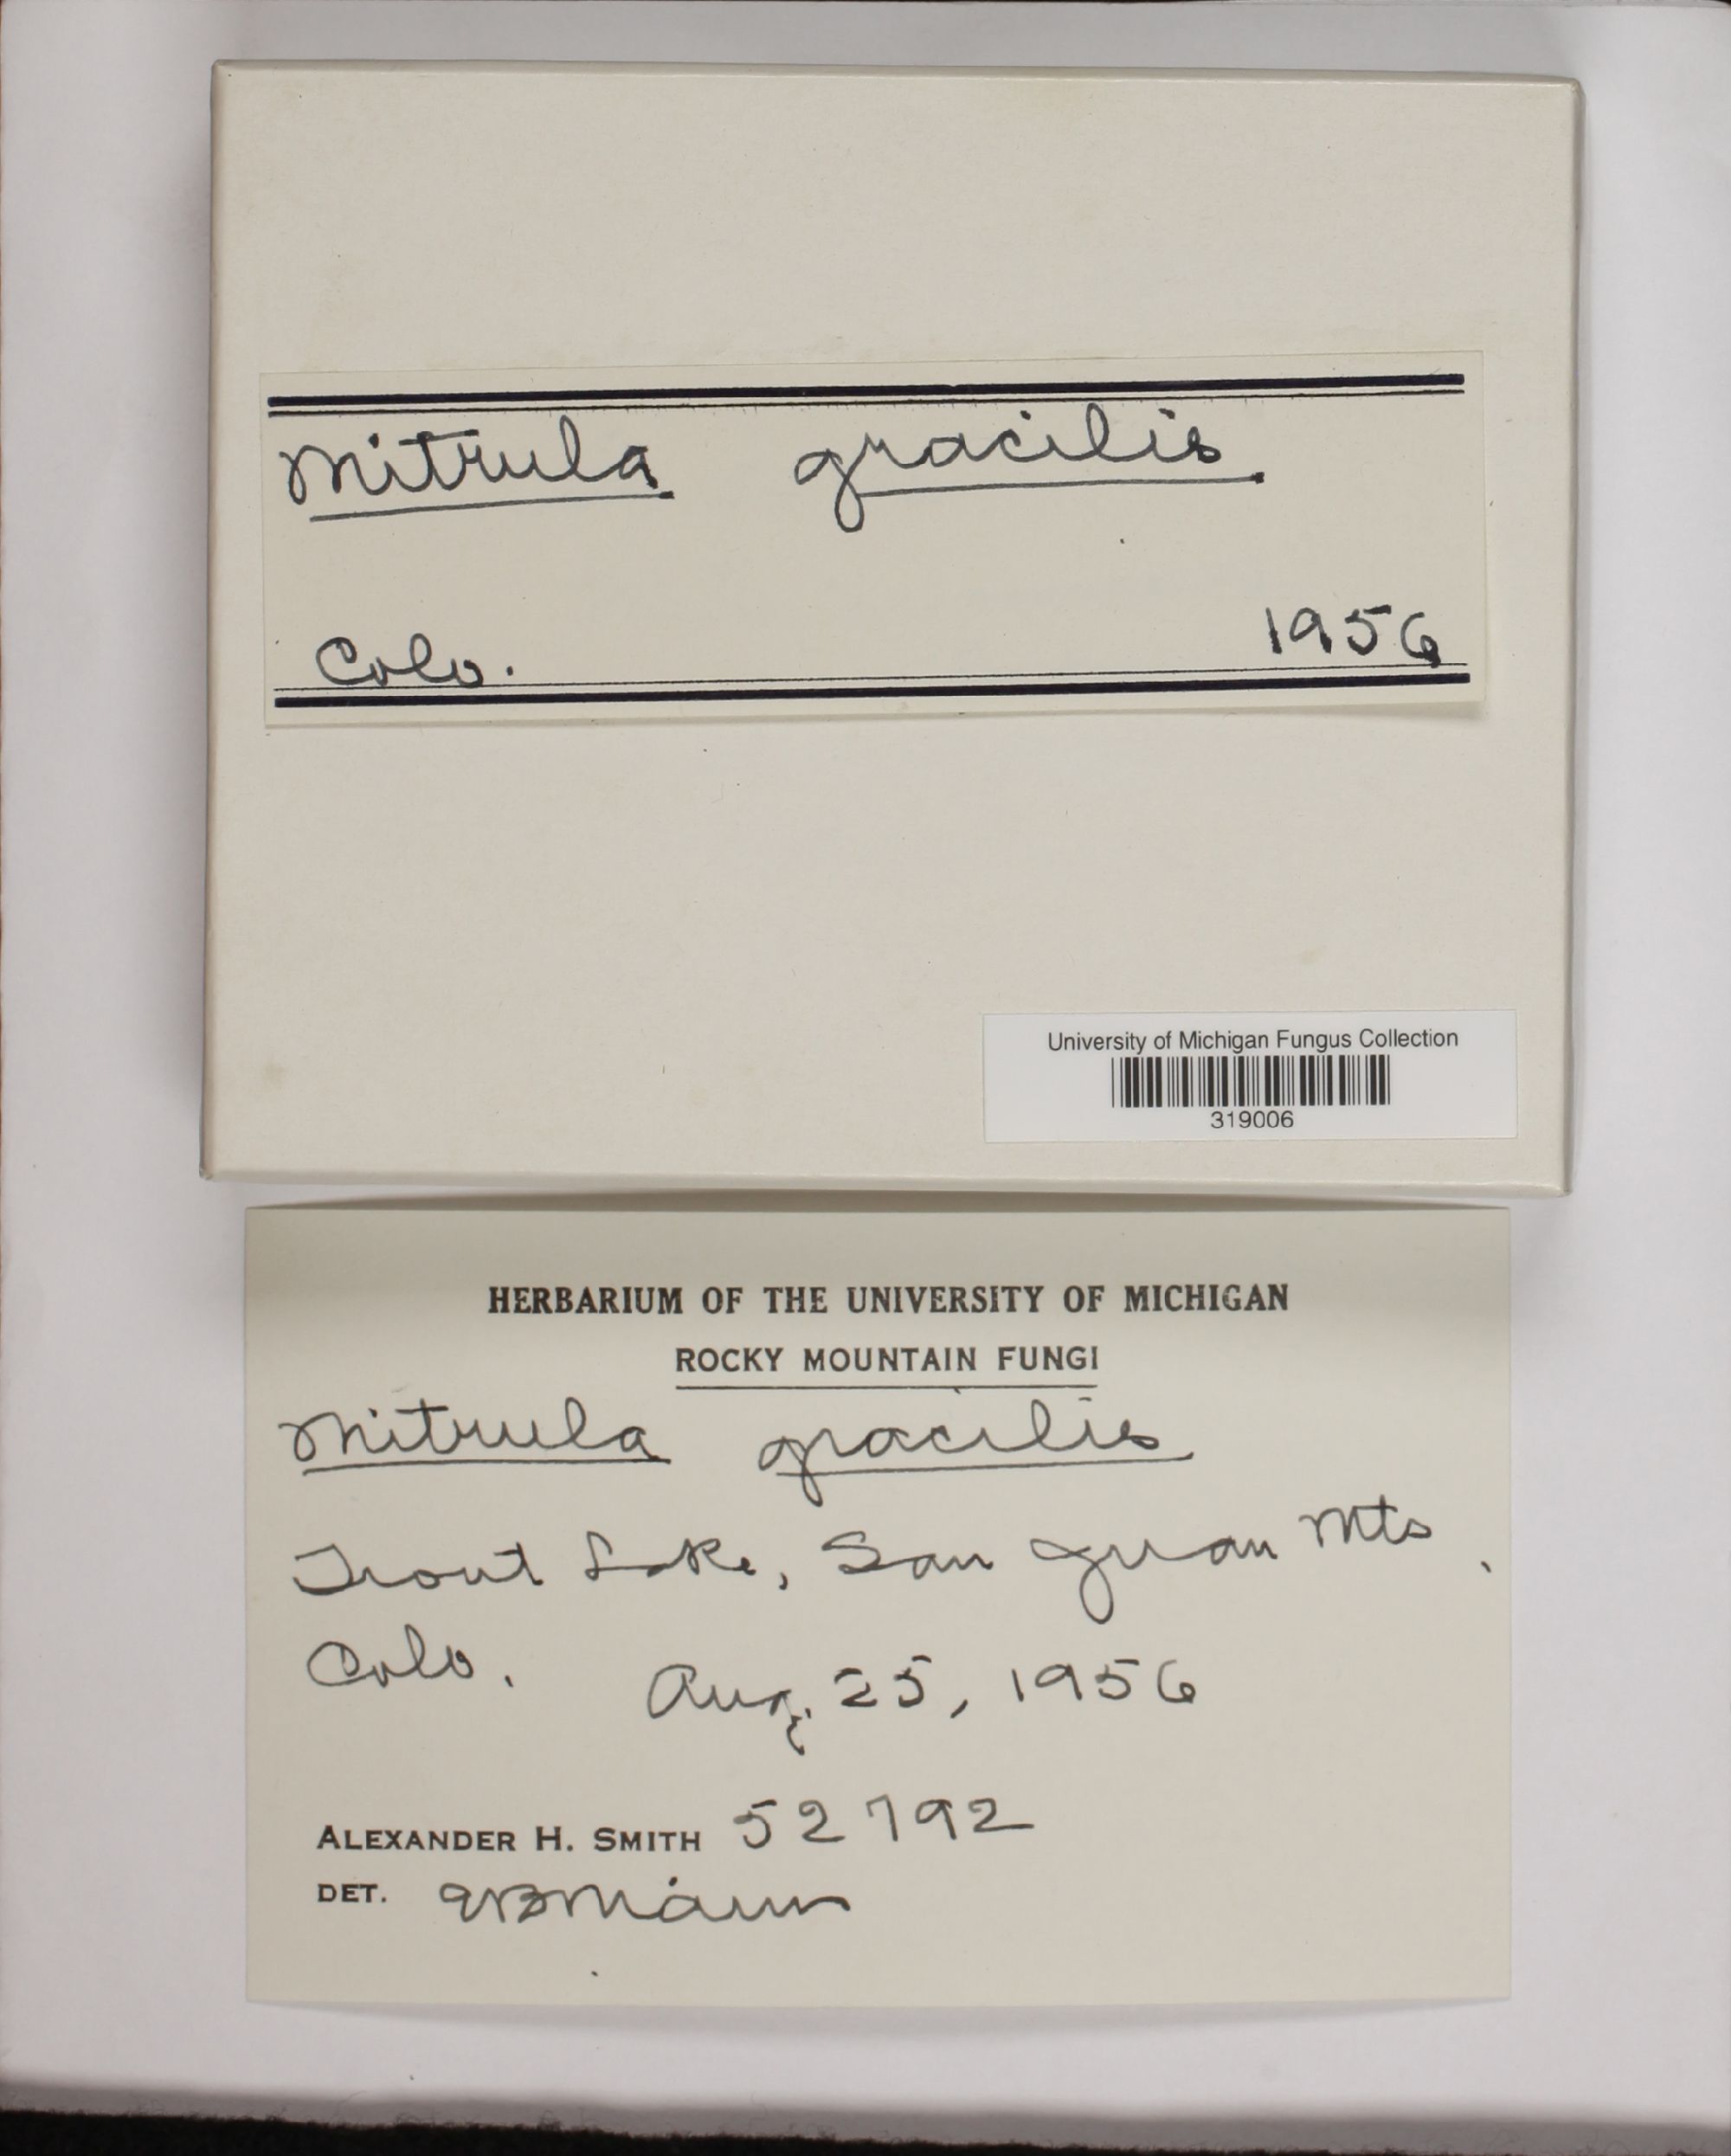 Mitrula gracilis.
Colo. 1956
University of Michigan Fungus Collection
319006
HERBARIUM OF THE UNIVERSITY OF MICHIGAN
ROCKY MOUNTAIN FUNGI
Mitrula gracilis
Trout Lake, San Juan Mts.
Colo. Aug. 25, 1956
ALEXANDER H. SMITH 52792
DET. EBMains